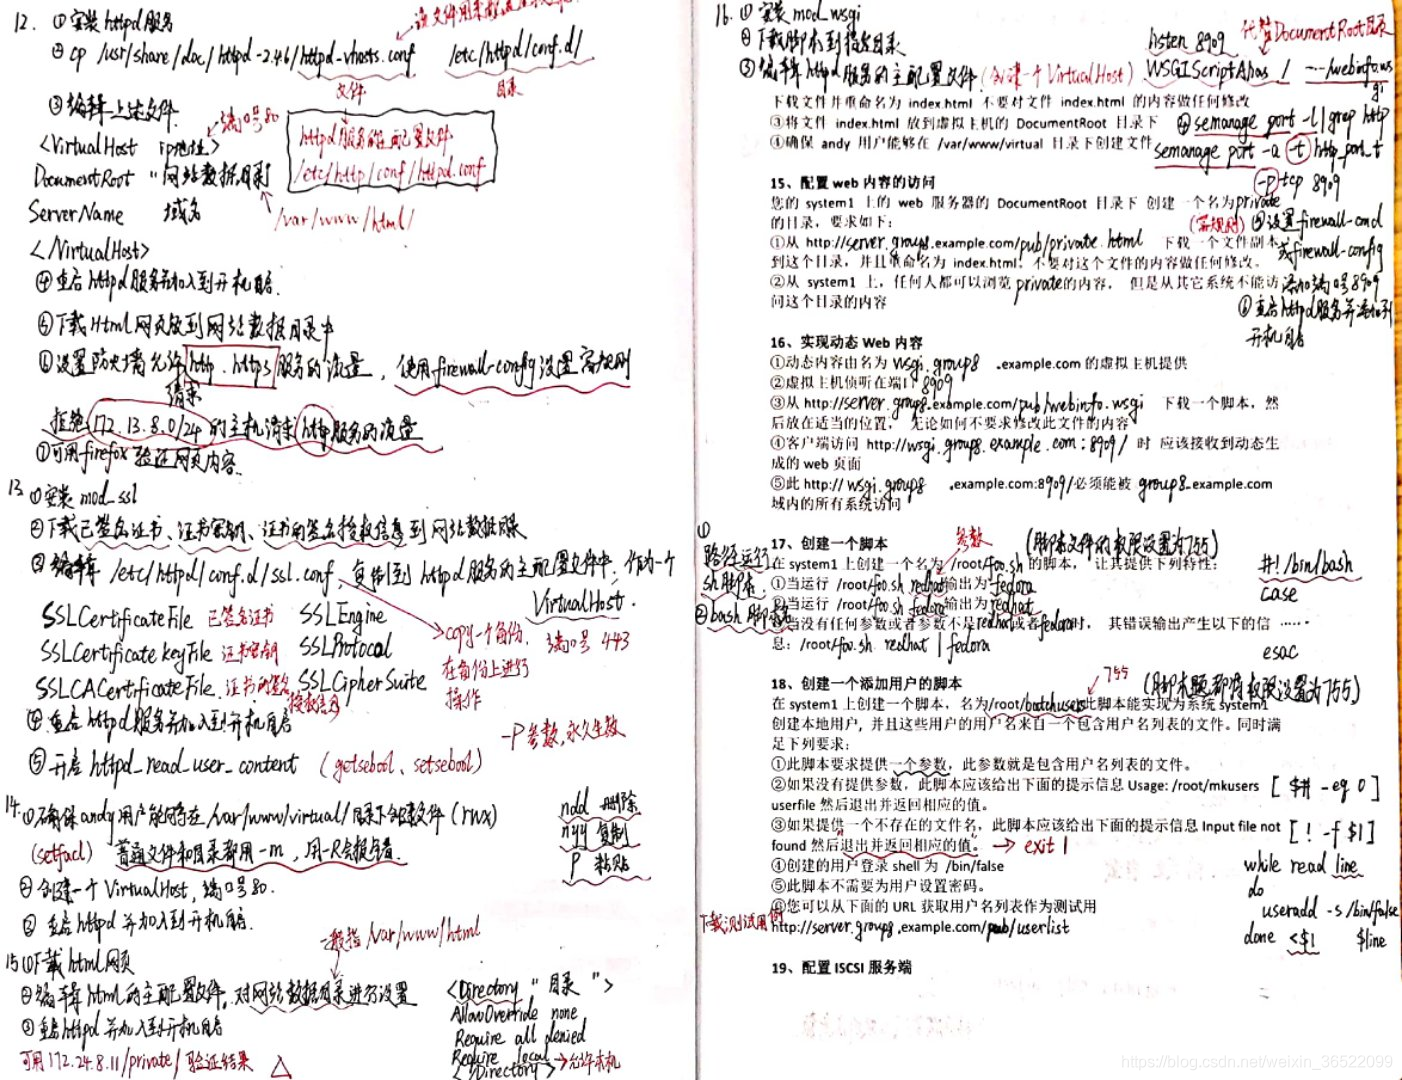 12. ①安装httpd服务
②cp /usr/share/doc/httpd-2.4.6/httpd-vhosts.conf /etc/httpd/conf.d/
文件 目录
③编辑上述文件
端口号80
<VirtualHost ip地址>
DocumentRoot "网站数据目录"
ServerName 域名
</VirtualHost>
httpd服务的主配置文件
/etc/http/conf/httpd.conf
/var/www/html/
④重启httpd服务并加入到开机自启.
⑤下载Html网页放到网站数据目录中
⑥设置防火墙允许http、https服务的流量，使用firewall-config设置富规则
请求
拒绝172.13.8.0/24的主机请求http服务的流量
⑦可用firefox验证网页内容.
13. ①安装mod_ssl
②下载已签名证书、证书密钥、证书的签名授权信息到网站数据目录
③编辑 /etc/httpd/conf.d/ssl.conf, 复制到httpd服务的主配置文件中，作为一个
VirtualHost.
SSLCertificateFile 已签名证书 SSLEngine
SSLCertificateKeyFile 证书密钥 SSLProtocol
SSLCACertificateFile 证书的签名授权信息 SSLCipherSuite
copy一个备份,
在备份上进行
操作
端口号 443
④重启httpd服务并加入到开机自启
⑤开启httpd_read_user_content (getsebool、setsebool)
-P参数,永久生效
14. ①确保andy用户能够在/var/www/virtual/目录下创建文件(rwx)
(setfacl) 普通文件和目录都用-m，用-R会报错.
②创建一个VirtualHost, 端口号80.
③重启httpd并加入到开机自启.
ndd 删除
nyy 复制
P 粘贴
一般指/var/www/html
15 ①下载html网页
②编辑html的主配置文件,对网站数据目录进行设置
③重启httpd并加入到开机自启
可用172.24.8.11/private/验证结果
<Directory "目录">
AllowOverride none
Require all denied
Require local →允许本机
</Directory>
16. ①安装mod_wsgi
②下载脚本到指定目录
③编辑httpd服务的主配置文件(创建一个VirtualHost)
listen 8909
代替DocumentRoot目录
WSGIScriptAlias / ---/webinfo.wsgi
下载文件并重命名为 index.html 不要对文件 index.html 的内容做任何修改
③将文件 index.html 放到虚拟主机的 DocumentRoot 目录下
④确保 andy 用户能够在 /var/www/virtual 目录下创建文件
④semanage port -l|grep http
semanage port -a -t http_port_t
-p tcp 8909
(富规则) ⑤设置firewall-cmd
或firewall-config
添加端口号8909
⑥重启httpd服务并添加到
开机自启
15、配置 web 内容的访问
您的 system1 上的 web 服务器的 DocumentRoot 目录下 创建一个名为private
的目录，要求如下：
①从 http://server.group8.example.com/pub/private.html 下载一个文件副本
到这个目录，并且重命名为 index.html。不要对这个文件的内容做任何修改。
②从 system1 上，任何人都可以浏览 private的内容， 但是从其它系统不能访
问这个目录的内容
16、实现动态 Web 内容
①动态内容由名为 wsgi.group8 .example.com 的虚拟主机提供
②虚拟主机侦听在端口 8909
③从 http://server.group8.example.com/pub/webinfo.wsgi 下载一个脚本，然
后放在适当的位置， 无论如何不要求修改此文件的内容
④客户端访问 http://wsgi.group8.example.com:8909/ 时 应该接收到动态生
成的 web 页面
⑤此 http://wsgi.group8 .example.com:8909/必须能被 group8.example.com
域内的所有系统访问
①
路径运行
sh脚本.
②bash 脚本名
参数
(脚本文件的权限设置为755)
17、创建一个脚本
在 system1 上创建一个名为 /root/foo.sh 的脚本， 让其提供下列特性：
①当运行 /root/foo.sh redhat输出为 fedora
②当运行 /root/foo.sh fedora输出为 redhat
③当没有任何参数或者参数不是redhat或者fedora时， 其错误输出产生以下的信
息：/root/foo.sh redhat | fedora
#!/bin/bash
case
......
esac
755 (脚本题都将权限设置为755)
18、创建一个添加用户的脚本
在 system1 上创建一个脚本，名为/root/batchusers此脚本能实现为系统 system1
创建本地用户，并且这些用户的用户名来自一个包含用户名列表的文件。同时满
足下列要求：
①此脚本要求提供一个参数，此参数就是包含用户名列表的文件。
②如果没有提供参数，此脚本应该给出下面的提示信息 Usage: /root/mkusers
userfile 然后退出并返回相应的值。
[ $# -eq 0 ]
③如果提供一个不存在的文件名，此脚本应该给出下面的提示信息 Input file not
found 然后退出并返回相应的值。 → exit 1
[ ! -f $1]
④创建的用户登录 shell 为 /bin/false
⑤此脚本不需要为用户设置密码。
⑥您可以从下面的 URL 获取用户名列表作为测试用
下载测试用例
http://server.group8.example.com/pub/userlist
while read line
do
useradd -s /bin/false
done <$1 $line
19、配置 ISCSI 服务端
https://blog.csdn.net/weixin_36522099